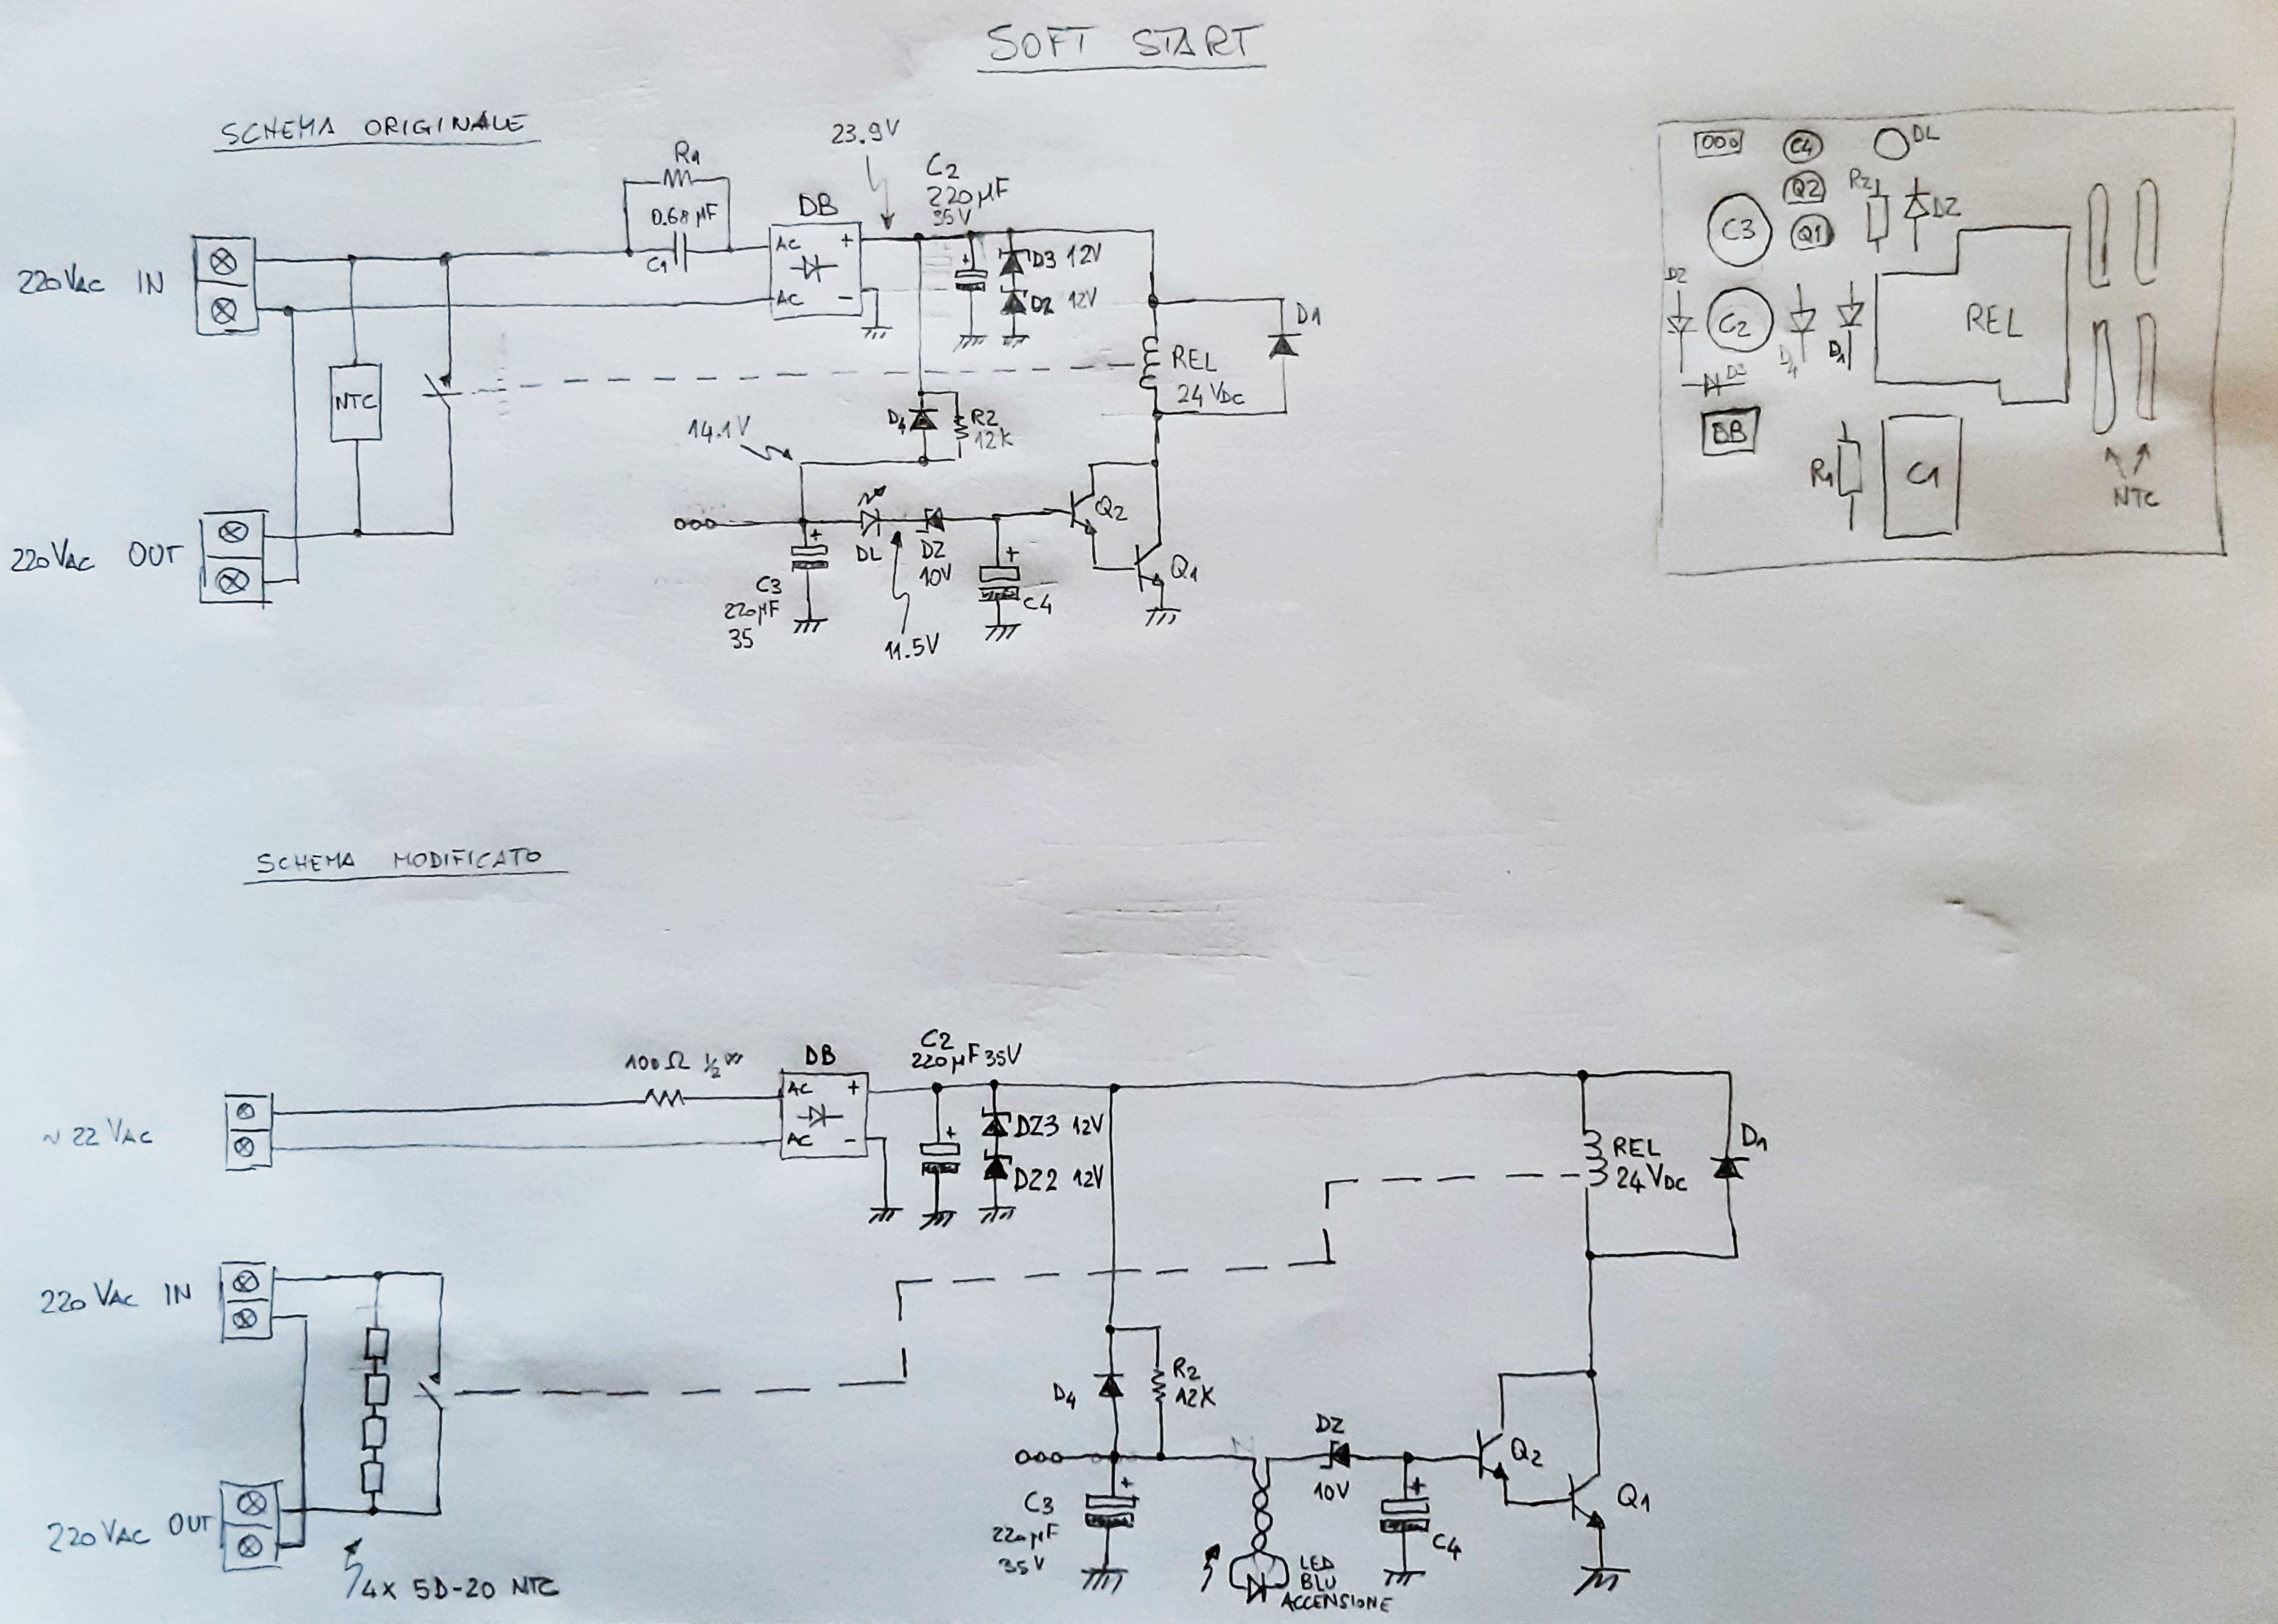 SOFT START
SCHEMA ORIGINALE
23.9V
R1
C2
220µF
35V
0.68µF
C1
DB
AC +
AC −
D3 12V
D2 12V
220VAC IN
NTC
REL
24 VDC
D1
D4
R2
12K
14.1V
220VAC OUT
DL
DZ
10V
Q2
Q1
C3
220µF
35
C4
11.5V
C4
DL
Q2
R2
DZ
C3
Q1
D2
C2
D4
D1
REL
D3
DB
R1
C1
NTC
SCHEMA MODIFICATO
100Ω ½W
DB
C2
220µF 35V
AC +
AC −
~22 VAC
DZ3 12V
DZ2 12V
REL
24VDC
D1
220 VAC IN
D4
R2
12K
DZ
10V
Q2
Q1
220VAC OUT
C3
220µF
35V
C4
LED
BLU
ACCENSIONE
4x 5D-20 NTC